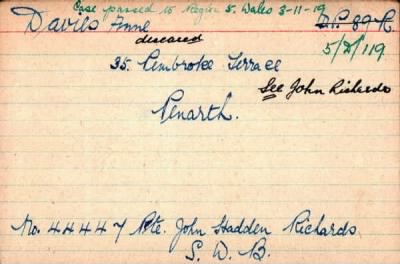 Case passed to Region S. Wales 3-11-19
Davies Anne
D.P. 89 R.
deceased
5/D/119
35. Pembroke Terrace
See John Richards
Penarth.
No. 44447 Pte. John Hadden Richards.
S. W. B.